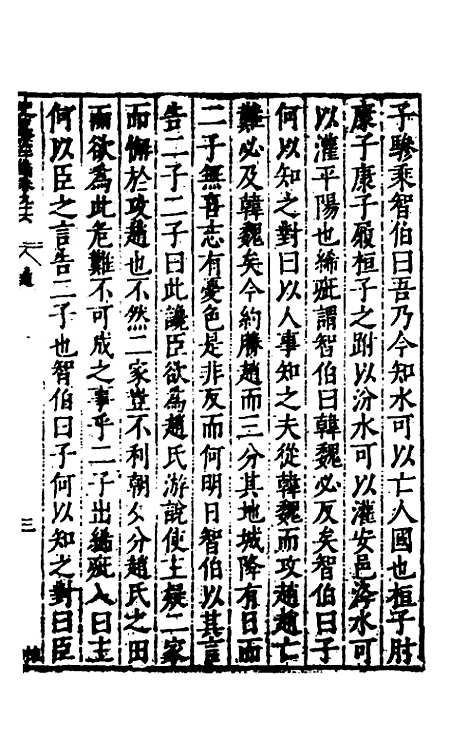 子驂乘智伯曰吾乃今知水可以亡人國也桓子肘
康子康子履桓子之跗以汾水可以灌安邑洚水可
以灌平陽也絺疵謂智伯曰韓魏必反矣智伯曰子
何以知之對曰以人事知之夫從韓魏而攻趙趙亡
難必及韓魏矣今約勝趙而三分其地城降有日而
二子無喜志有憂色是非反而何明日智伯以其言
告二子二子曰此讒臣欲為趙氏游說使主疑二家
而懈於攻趙也不然二家豈不利朝夕分趙氏之田
而欲為此危難不可成之事乎二子出絺疵入曰主
何以臣之言告二子也智伯曰子何以知之對曰臣
三